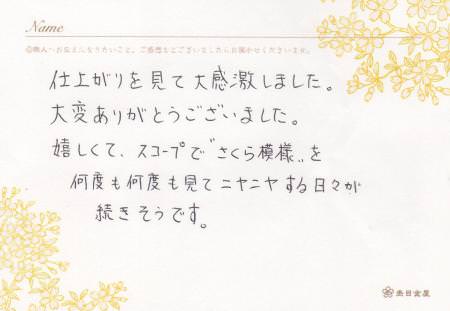 Name
◎職人へお伝えになりたいこと、ご感想などございましたらお聞かせくださいませ。
仕上がりを見て大感激しました。
大変ありがとうございました。
嬉しくて、スコープで〝さくら模様〟を
何度も何度も見てニヤニヤする日々が
続きそうです。
杢目金屋